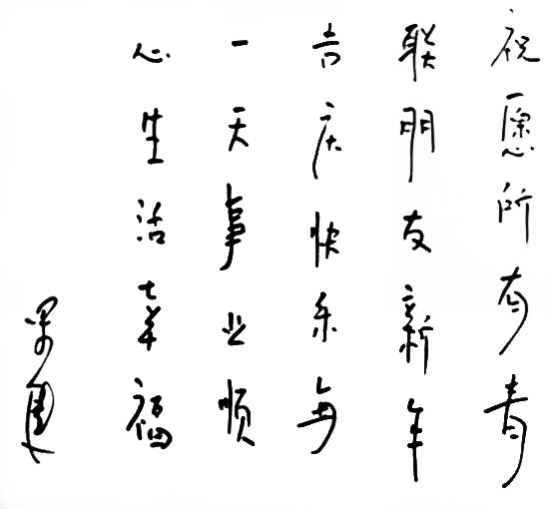 祝愿所有青
联朋友新年
吉庆快乐每
一天事业顺
心生活幸福